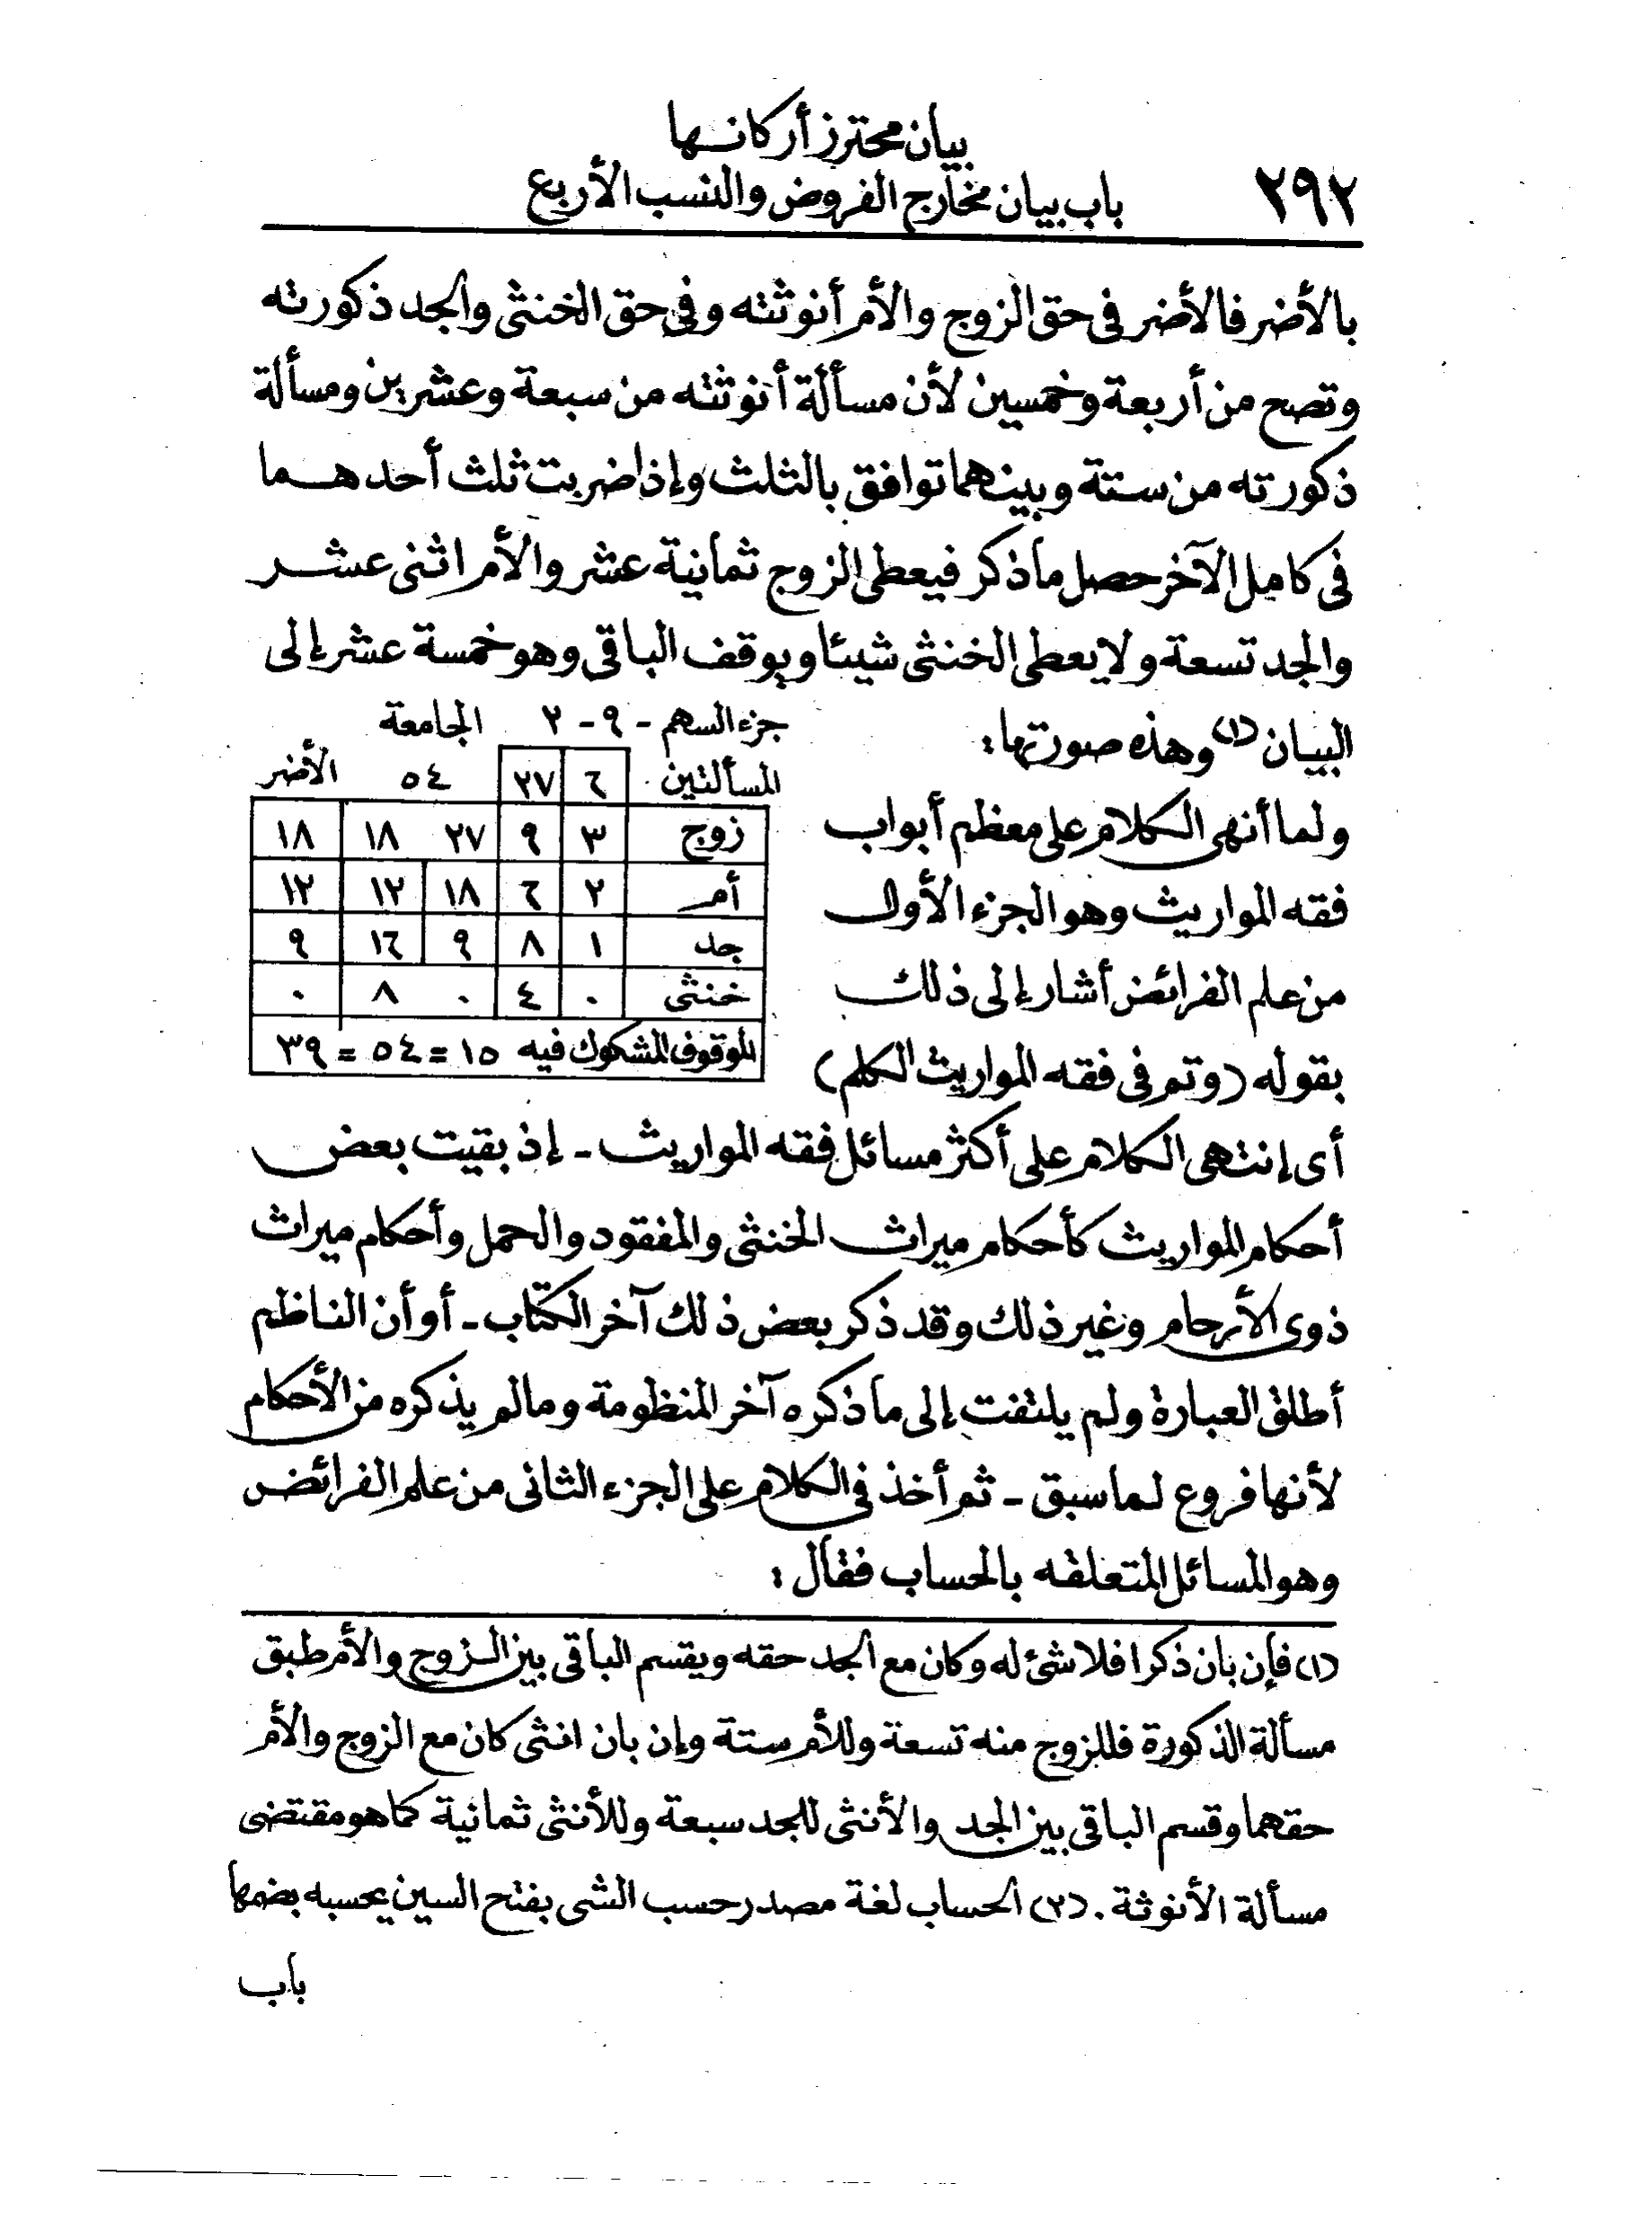 بيان محترز أركانها
٢٩٢ باب بيان مخارج الفروض والنسب الأربع
بالأضر فالأضر فى حق الزوج والأم أنوثته وفى حق الخنثى والجد ذكورته
وتصح من أربعة وخمسين لأن مسألة أنوثته من سبعة وعشرين ومسألة
ذكورته من ستة وبينهما توافق بالثلث وإذا ضربت ثلث أحدهما
فى كامل الآخر حصل ما ذكر فيعطى الزوج ثمانية عشر والأم اثنى عشر
والجد تسعة ولا يعطى الخنثى شيئا ويوقف الباقى وهو خمسة عشر إلى
البيان (١) وهذه صورتها:
جزء السهم - ٩ - ٢ الجامعة
المسألتين ٦ ٢٧ ٥٤ الأضر
زوج ٣ ٩ ٢٧ ١٨ ١٨
أم ٢ ٦ ١٨ ١٢ ١٢
جد ١ ٨ ٩ ١٦ ٩
خنثى ٠ ٤ ٠ ٨ ٠
الموقوف المشكوك فيه ١٥ = ٥٤ = ٣٩
ولما أنهى الكلام على معظم أبواب
فقه المواريث وهو الجزء الأول
من علم الفرائض أشار إلى ذلك
بقوله (وتم فى فقه المواريث الكلم)
أى إنتهى الكلام على أكثر مسائل فقه المواريث - إذ بقيت بعض
أحكام المواريث كأحكام ميراث الخنثى والمفقود والحمل وأحكام ميراث
ذوى الأرحام وغير ذلك وقد ذكر بعض ذلك آخر الكتاب - أو أن الناظم
أطلق العبارة ولم يلتفت إلى ما ذكره آخر المنظومة وما لم يذكره من الأحكام
لأنها فروع لما سبق - ثم أخذ فى الكلام على الجزء الثانى من علم الفرائض
وهو المسائل المتعلقه بالحساب فقال:
(١) فإن بان ذكرا فلا شئ له وكان مع الجد حقه ويقسم الباقى بين الزوج والأم طبق
مسألة الذكورة فللزوج منه تسعة وللأم ستة وإن بان انثى كان مع الزوج والأم
حقهما وقسم الباقى بين الجد والأنثى للجد سبعة وللأنثى ثمانية كما هو مقتضى
مسألة الأنوثة. (٢) الحساب لغة مصدر حسب الشى بفتح السين يحسبه بضمها
باب